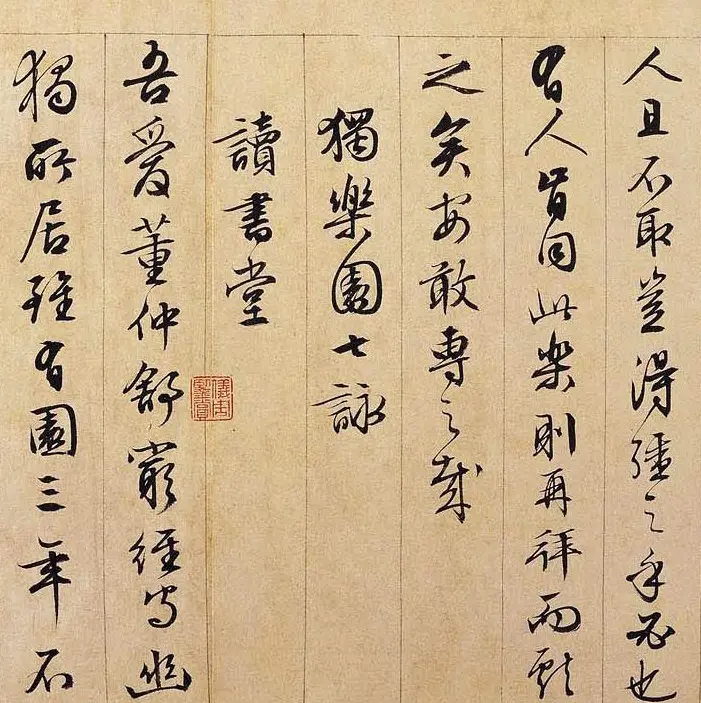 人且不取豈得彊之乎必也
有人肯同此樂則再拜而獻
之矣安敢專之哉
獨樂園七詠
讀書堂
吾愛董仲舒窮經守幽
獨所居雖有園三年不
儀周鑒賞